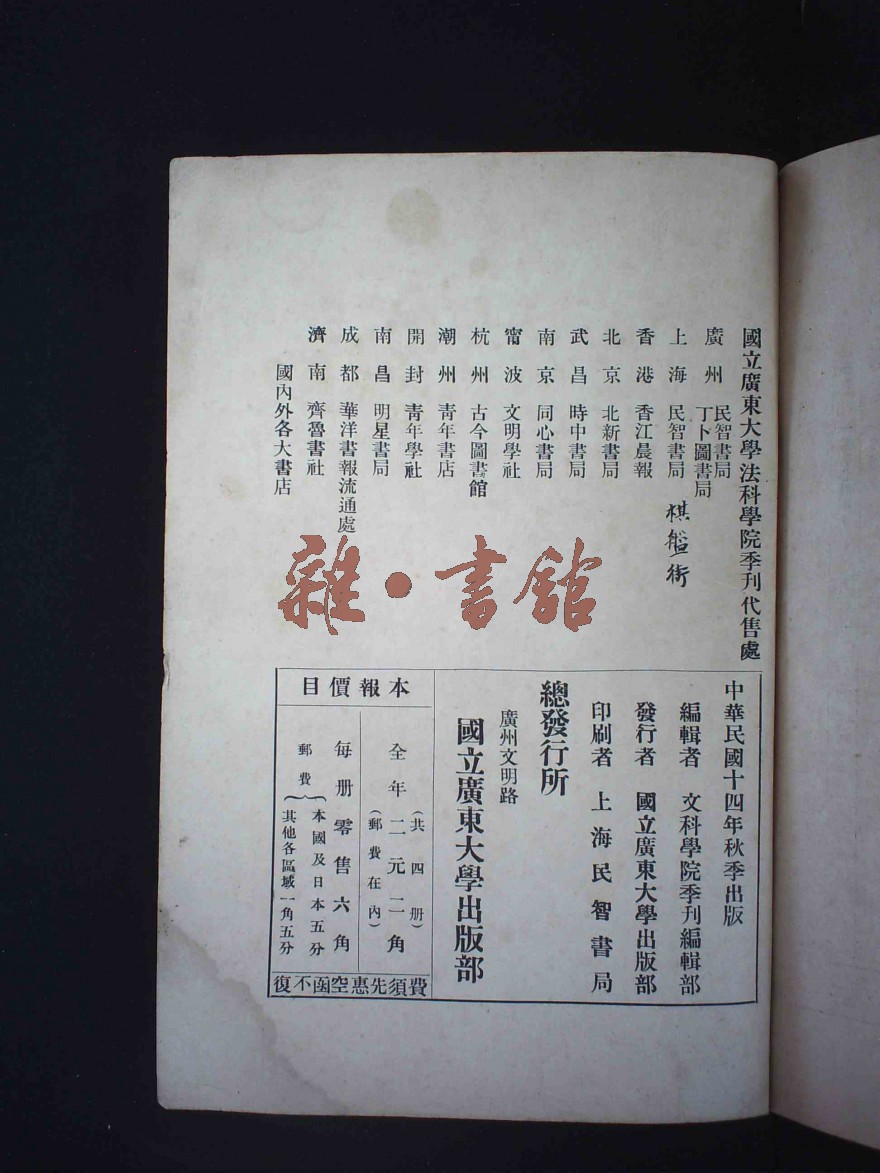 國立廣東大學法科學院季刊代售處
廣州 民智書局
丁卜圖書局
上海 民智書局 棋盤街
香港 香江晨報
北京 北新書局
武昌 時中書局
南京 同心書局
甯波 文明學社
杭州 古今圖書館
潮州 青年書店
開封 青年學社
南昌 明星書局
成都 華洋書報流通處
濟南 齊魯書社
國內外各大書店
雜•書館
中華民國十四年秋季出版
編輯者 文科學院季刊編輯部
發行者 國立廣東大學出版部
印刷者 上海民智書局
總發行所
廣州文明路
國立廣東大學出版部
本報價目
全年二元二角
(共四册)
(郵費在內)
每册零售六角
郵費
本國及日本五分
其他各區域一角五分
費須先惠空函不復